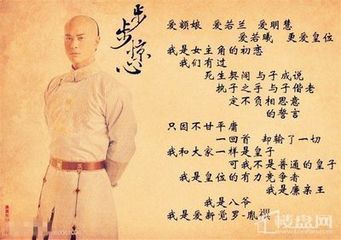 步步惊心
爱额娘 爱若兰 爱明慧
爱若曦 更爱皇位
我是女主角的初恋
我们有过
死生契阔 与子成说
执子之手 与子偕老
定不负相思意
的誓言
只因不甘平庸
一回首 却输了一切
我和大家一样是皇子
可我不是普通的皇子
我是皇位的有力竞争者
我是廉亲王
我是八爷
我是爱新觉罗-胤禩
楼盘网